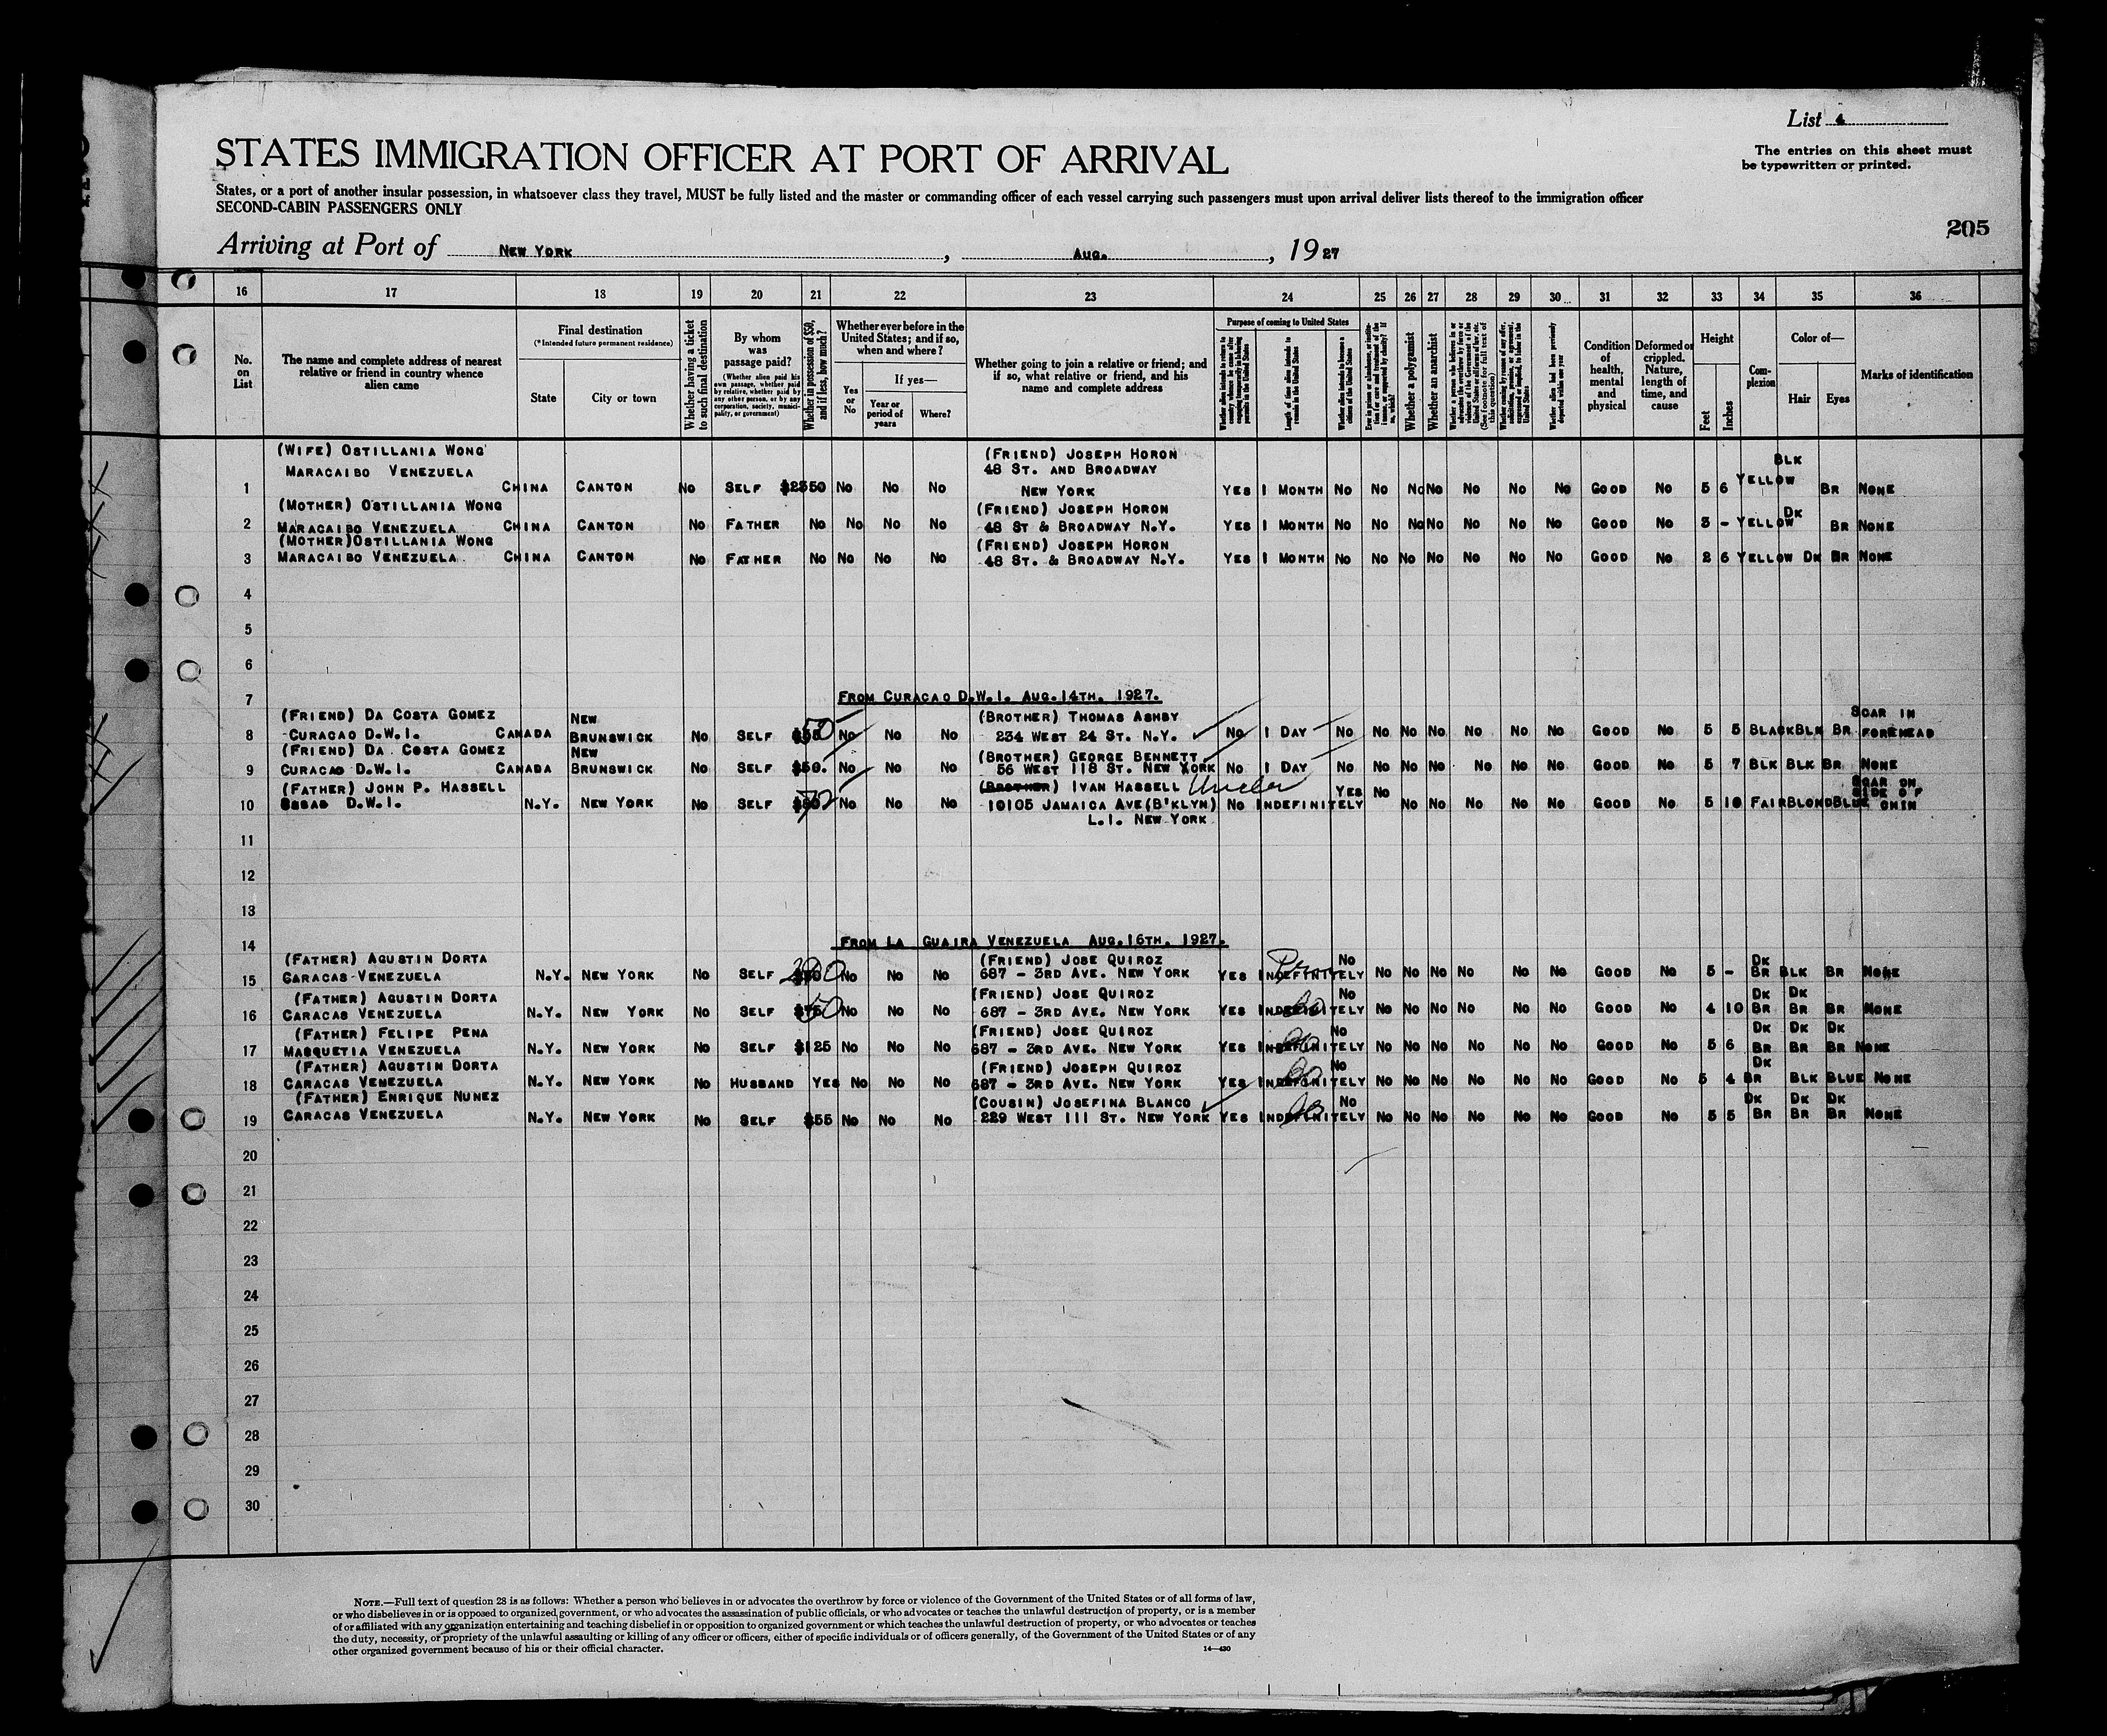 List 4
The entries on this sheet must
be typewritten or printed.
STATES IMMIGRATION OFFICER AT PORT OF ARRIVAL
States, or a port of another insular possession, in whatsoever class they travel, MUST be fully listed and the master or commanding officer of each vessel carrying such passengers must upon arrival deliver lists thereof to the immigration officer
SECOND-CABIN PASSENGERS ONLY
205
Arriving at Port of NEW YORK, AUG., 1927
16 17 18 19 20 21 22 23 24 25 26 27 28 29 30 31 32 33 34 35 36
No. on List
The name and complete address of nearest relative or friend in country whence alien came
Final destination
(*Intended future permanent residence)
State
City or town
Whether having a ticket to such final destination
By whom was passage paid?
(Whether alien paid his own passage, whether paid by relative, whether paid by any other person, or by any corporation, society, municipality, or government)
Whether in possession of $50, and if less, how much?
Whether ever before in the United States; and if so, when and where?
Yes or No
If yes—
Year or period of years
Where?
Whether going to join a relative or friend; and if so, what relative or friend, and his name and complete address
Purpose of coming to United States
Length of time alien intends to remain in the United States
Whether alien intends to become a citizen of the United States
Whether a polygamist
Whether an anarchist
Condition of health, mental and physical
Deformed or crippled. Nature, length of time, and cause
Height
Feet
Inches
Complexion
Color of—
Hair
Eyes
Marks of identification
(WIFE) OSTILLANIA WONG (FRIEND) JOSEPH HORON
MARACAIBO VENEZUELA 48 ST. AND BROADWAY BLK
1 CHINA CANTON NO SELF NO NO NO NEW YORK YES 1 MONTH NO NO NO NO NO NO NO GOOD NO 5 6 YELLOW BR NONE
(MOTHER) OSTILLANIA WONG (FRIEND) JOSEPH HORON DK
2 MARACAIBO VENEZUELA CHINA CANTON NO FATHER NO NO NO NO 48 ST & BROADWAY N.Y. YES 1 MONTH NO NO NO NO NO NO NO GOOD NO 3 - YELLOW BR NONE
(MOTHER)OSTILLANIA WONG (FRIEND) JOSEPH HORON
3 MARACAIBO VENEZUELA CHINA CANTON NO FATHER NO NO NO NO 48 ST. & BROADWAY N.Y. YES 1 MONTH NO NO NO NO NO NO NO GOOD NO 2 6 YELLOW DK BR NONE
4
5
6
7 FROM CURACAO D.W.I. AUG.14TH. 1927.
(FRIEND) DA COSTA GOMEZ NEW (BROTHER) THOMAS ASHBY SCAR IN
8 CURACAO D.W.I. CANADA BRUNSWICK NO SELF 50 NO NO NO 234 WEST 24 ST. N.Y. NO 1 DAY NO NO NO NO NO NO NO GOOD NO 5 5 BLACK BLK BR FOREHEAD
(FRIEND) DA COSTA GOMEZ NEW (BROTHER) GEORGE BENNETT
9 CURACAO D.W.I. CANADA BRUNSWICK NO SELF $50. NO NO NO 56 WEST 118 ST. NEW YORK NO 1 DAY NO NO NO NO NO NO NO GOOD NO 5 7 BLK BLK BR NONE
(FATHER) JOHN P. HASSELL (BROTHER) IVAN HASSELL Uncle YES NO SCAR ON SIDE OF
10 D.W.I. N.Y. NEW YORK NO SELF NO NO NO 10105 JAMAICA AVE(B'KLYN) NO INDEFINITELY NO NO NO NO NO GOOD NO 5 10 FAIR BLOND BLUE CHIN
L.I. NEW YORK
11
12
13
14 FROM LA GUAIRA VENEZUELA AUG.16TH. 1927.
(FATHER) AGUSTIN DORTA (FRIEND) JOSE QUIROZ NO DK
15 CARACAS VENEZUELA N.Y. NEW YORK NO SELF NO NO NO 687 - 3RD AVE. NEW YORK YES INDEFINITELY NO NO NO NO NO NO GOOD NO 5 - BR BLK BR NONE
(FATHER) AGUSTIN DORTA (FRIEND) JOSE QUIROZ NO DK DK
16 CARACAS VENEZUELA N.Y. NEW YORK NO SELF 50 NO NO NO 687 - 3RD AVE. NEW YORK YES INDEFINITELY NO NO NO NO NO NO GOOD NO 4 10 BR BR BR NONE
(FATHER) FELIPE PENA (FRIEND) JOSE QUIROZ NO DK DK DK
17 MASQUETIA VENEZUELA N.Y. NEW YORK NO SELF $125 NO NO NO 687 - 3RD AVE. NEW YORK YES INDEFINITELY NO NO NO NO NO NO GOOD NO 5 6 BR BR BR NONE
(FATHER) AGUSTIN DORTA (FRIEND) JOSEPH QUIROZ NO DK
18 CARACAS VENEZUELA N.Y. NEW YORK NO HUSBAND YES NO NO NO 687 - 3RD AVE. NEW YORK YES INDEFINITELY NO NO NO NO NO NO GOOD NO 5 4 BR BLK BLUE NONE
(FATHER) ENRIQUE NUNEZ (COUSIN) JOSEFINA BLANCO NO DK DK DK
19 CARACAS VENEZUELA N.Y. NEW YORK NO SELF $55 NO NO NO 229 WEST 111 ST. NEW YORK YES INDEFINITELY NO NO NO NO NO NO GOOD NO 5 5 BR BR BR NONE
20
21
22
23
24
25
26
27
28
29
30
NOTE.—Full text of question 28 is as follows: Whether a person who believes in or advocates the overthrow by force or violence of the Government of the United States or of all forms of law,
or who disbelieves in or is opposed to organized government, or who advocates the assassination of public officials, or who advocates or teaches the unlawful destruction of property, or is a member
of or affiliated with any organization entertaining and teaching disbelief in or opposition to organized government or which teaches the unlawful destruction of property, or who advocates or teaches
the duty, necessity, or propriety of the unlawful assaulting or killing of any officer or officers, either of specific individuals or of officers generally, of the Government of the United States or of any
other organized government because of his or their official character.
14—430